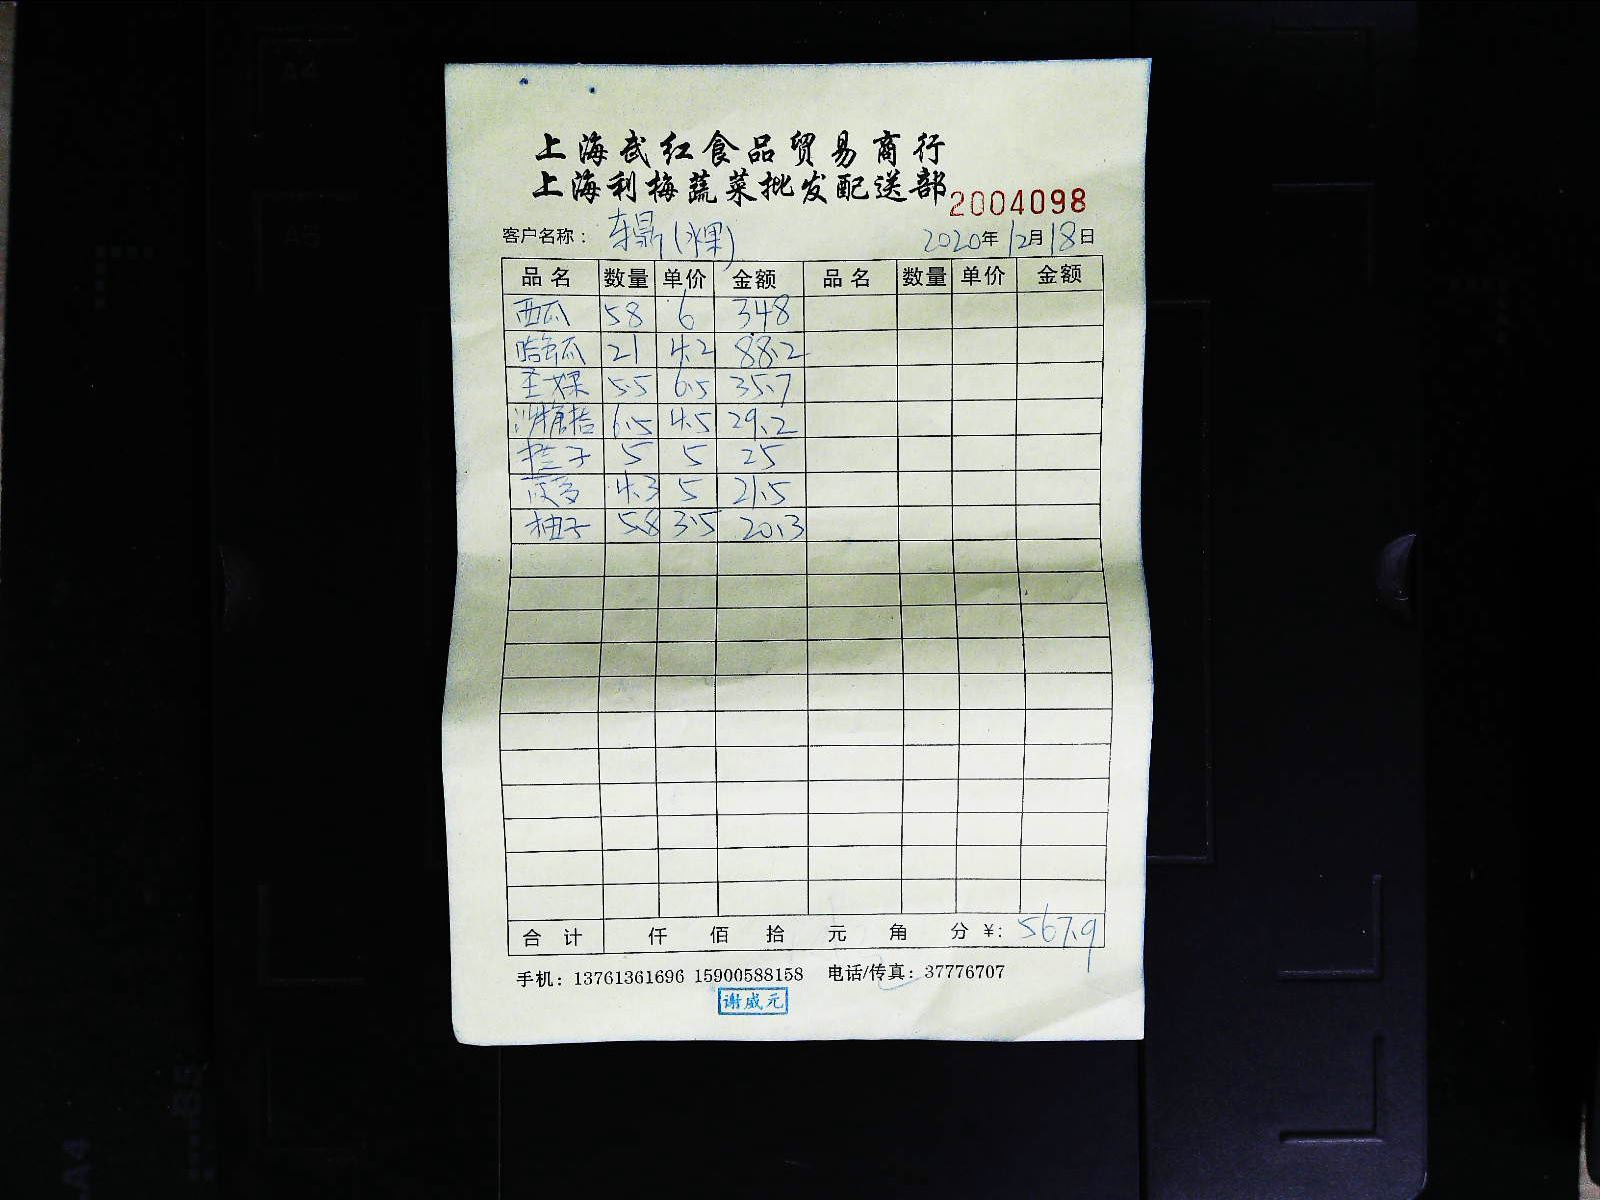 上海武红食品贸易商行
上海利梅蔬菜批发配送部 2004098
客户名称： 东鼎(水果) 2020年12月18日
品名 数量 单价 金额 品名 数量 单价 金额
西瓜 58 6 348
哈密瓜 21 4.2 88.2
圣女果 5.5 6.5 35.7
沙糖桔 6.5 4.5 29.2
5 5 25
4.3 5 21.5
柚子 5.8 3.5 20.3
合计 仟 佰 拾 元 角 分 ¥: 567.9
手机：13761361696 15900588158 电话/传真：37776707
谢威元
A4
A5
A4
B5